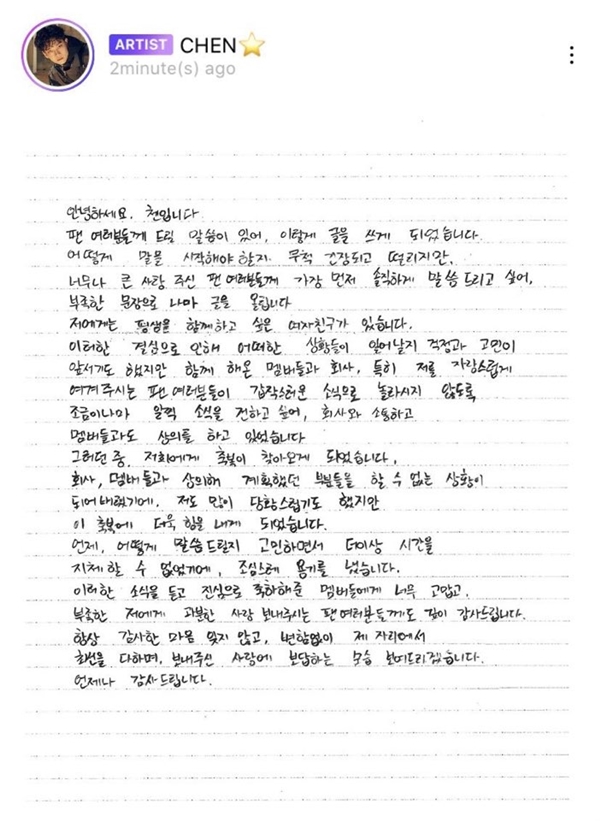 ARTIST CHEN
2minute(s) ago
안녕하세요. 첸입니다
팬 여러분들께 드릴 말씀이 있어, 이렇게 글을 쓰게 되었습니다.
어떻게 말을 시작해야 할지 무척 긴장되고 떨리지만,
너무나 큰 사랑 주신 팬 여러분들께 가장 먼저 솔직하게 말씀 드리고 싶어,
부족한 문장으로 나마 글을 올립니다
저에게는 평생을 함께하고 싶은 여자친구가 있습니다.
이러한 결심으로 인해 어떠한 상황들이 일어날지 걱정과 고민이
앞서기도 했지만 함께 해온 멤버들과 회사, 특히 저를 자랑스럽게
여겨주시는 팬 여러분들이 갑작스러운 소식으로 놀라시지 않도록
조금이나마 일찍 소식을 전하고 싶어, 회사와 소통하고
멤버들과도 상의를 하고 있었습니다
그러던 중, 저희에게 축복이 찾아오게 되었습니다.
회사, 멤버들과 상의해 계획했던 부분들을 할 수 없는 상황이
되어버렸기에, 저도 많이 당황스럽기도 했지만
이 축복에 더욱 힘을 내게 되었습니다.
언제, 어떻게 말씀드릴지 고민하면서 더이상 시간을
지체할 수 없었기에, 조심스레 용기를 냈습니다.
이러한 소식을 듣고 진심으로 축하해준 멤버들에게 너무 고맙고,
부족한 저에게 과분한 사랑 보내주시는 팬 여러분들께도 깊이 감사드립니다.
항상 감사한 마음 잊지 않고, 변함없이 제 자리에서
최선을 다하며, 보내주신 사랑에 보답하는 모습 보여드리겠습니다.
언제나 감사드립니다.